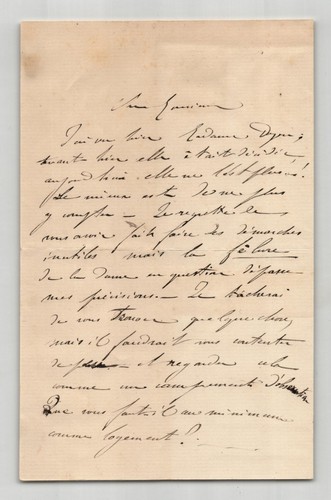 Cher Monsieur
J'ai vu hier Madame
avant hier elle était décidée
aujourd'hui elle ne l'est plus !
Le mieux est de ne plus
y compter – Je regrette de
vous avoir fait faire des démarches
inutiles mais la
de la dame en question dépasse
mes prévisions. – Je tâcherai
de vous trouver quelque chose,
mais il faudrait vous contenter
de peu – et regarder cela
comme un campement
Que vous faut-il au minimum
comme logement ?